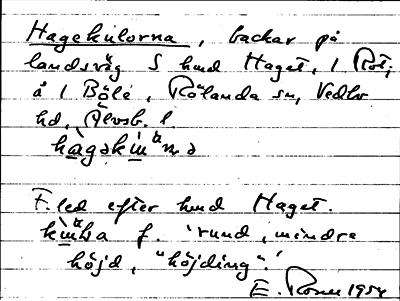 Hagekulorna, backar på
landsväg S hmd Haget, 1 Rot;
å 1 Böle, Rölanda sn, Vedbo
hd, Älvsb. l.
F.led efter hmd Haget.
f. 'rund, mindre
höjd, "höjding".'
E. 1954